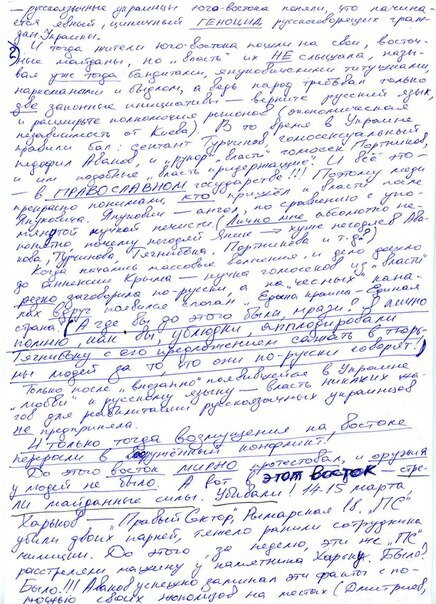 – русскоязычные украинцы юго-востока поняли, что начина-
ется явный, циничный ГЕНОЦИД русскоговорящих граж-
дан Украины.
2) И тогда жители юго-востока пошли на свои, восточ-
ные майданы, но „власть" их НЕ слышала, назы-
вая уже тогда бандитами, януковичскими титушками,
наркоманами и быдлом, а ведь народ требовал только
две законные инициативы – верните русский язык,
и расширьте полномочия регионов (экономическая
независимость от Киева). В то время в Украине
правили бал: сектант Турчинов, гомосексуальный
педофил Аваков, и „рупор" власти" голосек Портников,
и им подобные „власть придержащие". И всё это –
– в ПРАВОСЛАВНОМ государстве!!! Поэтому люди
прекрасно понимали, кто пришёл к власти после
Януковича. Янукович – ангел, по сравнению с упо-
мянутой кучкой нечисти. (Лично мне абсолютно не-
понятно, почему негодяй Яник → хуже негодяев Ава-
кова, Турчинова, Тягнибока, Портникова и т.д.?)
Когда начались массовые волнения, и дело дошло
до аннексии Крыма – кучка голосеков у „власти"
резко заговорила по-русски, а на „честных" кана-
лах вдруг появился слоган „Едина країна – Единая
страна". (А где вы до этого были, мрази? Я лично
помню, как вы, ублюдки, аплодировали
Тягнибоку с его предложением сажать в тюрь-
мы людей за то что они по-русски говорят!)
Только после „внезапно" появившейся в Украине
„любви" к русскому языку – власть никаких ша-
гов для реабилитации русскоязычных украинцев
не предприняла.
И только тогда возмущения на Востоке
переросли в вооружённый конфликт!
До этого восток мирно протестовал, и оружия
у людей не было. А вот в этот восток – стре-
ляли майданные силы. Убивали! 14-15 марта
Харьков – „Правый Сектор", Рымарская 18, „ПС"
убили двоих парней, тяжело ранили сотрудника
милиции. До этого, за неделю, эти же „ПС"
расстреляли машину у памятника Харьку. Было?
Было!!! Аваков успешно заминал эти факты с по-
мощью своих жополизов на постах (Дмитриев,